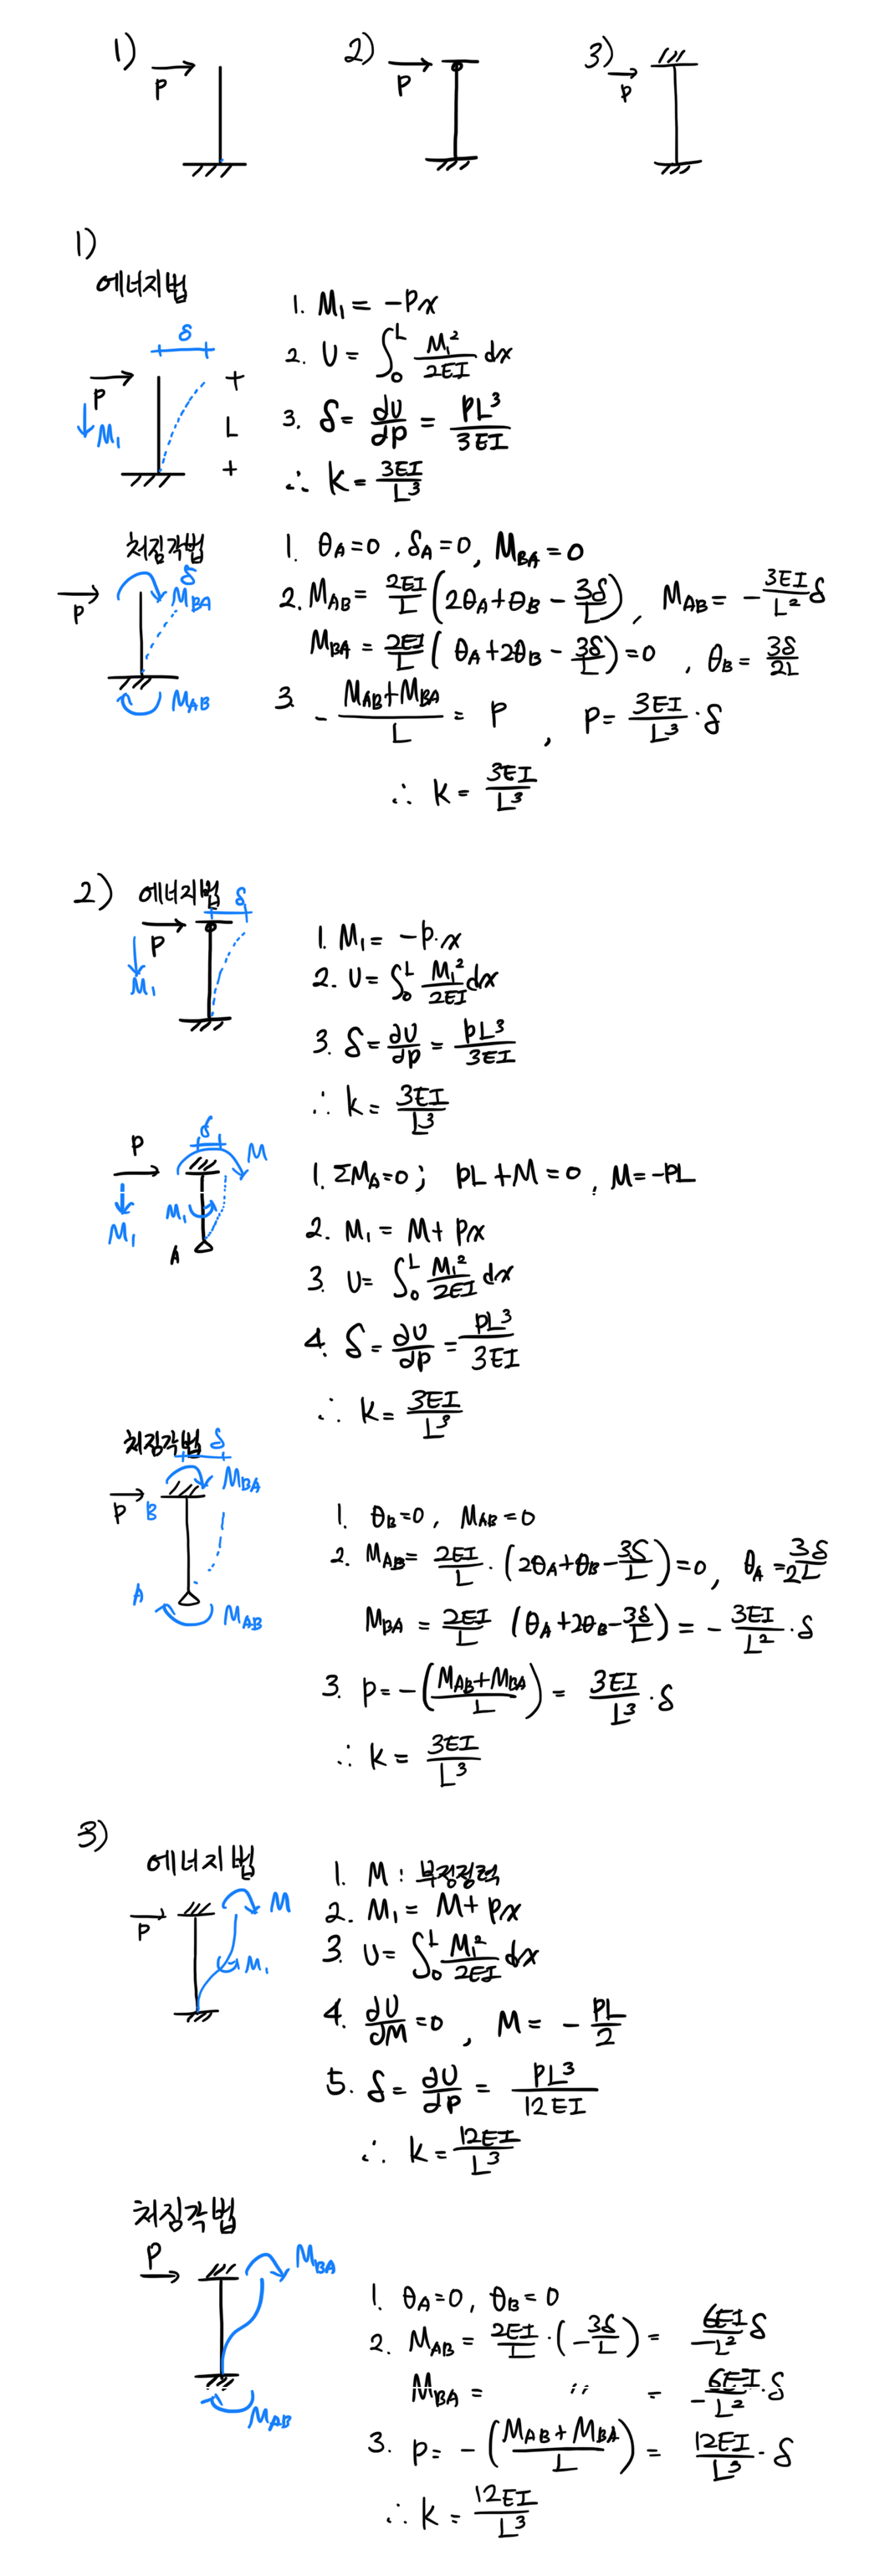 1) 2) 3)
P P P
1)
에너지법
δ
P
M₁
L
1. M₁ = -Px
2. U = ∫₀ᴸ M₁²/2EI dx
3. δ = ∂U/∂P = PL³/3EI
∴ k = 3EI/L³
처짐각법
δ
P
M_BA
M_AB
1. θ_A=0, δ_A=0, M_BA=0
2. M_AB = 2EI/L (2θ_A+θ_B - 3δ/L), M_AB = - 3EI/L² δ
M_BA = 2EI/L (θ_A+2θ_B - 3δ/L) = 0, θ_B = 3δ/2L
3. - (M_AB+M_BA)/L = P, P = 3EI/L³ · δ
∴ k = 3EI/L³
2) 에너지법
δ
P
M₁
1. M₁ = -P·x
2. U = ∫₀ᴸ M₁²/2EI dx
3. δ = ∂U/∂P = PL³/3EI
∴ k = 3EI/L³
δ
P
M
M₁
M₁
A
1. ΣM_A=0 ; PL+M=0, M=-PL
2. M₁ = M+Px
3. U = ∫₀ᴸ M₁²/2EI dx
4. δ = ∂U/∂P = PL³/3EI
∴ k = 3EI/L³
처짐각법
δ
P B M_BA
A M_AB
1. θ_B=0, M_AB=0
2. M_AB = 2EI/L · (2θ_A+θ_B - 3δ/L) = 0, θ_A = 3δ/2L
M_BA = 2EI/L (θ_A+2θ_B - 3δ/L) = - 3EI/L² · δ
3. P = - ((M_AB+M_BA)/L) = 3EI/L³ · δ
∴ k = 3EI/L³
3)
에너지법
P
M
M₁
1. M : 부정정력
2. M₁ = M+Px
3. U = ∫₀ᴸ M₁²/2EI dx
4. ∂U/∂M = 0, M = - PL/2
5. δ = ∂U/∂P = PL³/12EI
∴ k = 12EI/L³
처짐각법
P
M_BA
M_AB
1. θ_A=0, θ_B=0
2. M_AB = 2EI/L · (- 3δ/L) = - 6EI/L² δ
M_BA = 〃 = - 6EI/L² · δ
3. P = - ((M_AB+M_BA)/L) = 12EI/L³ · δ
∴ k = 12EI/L³